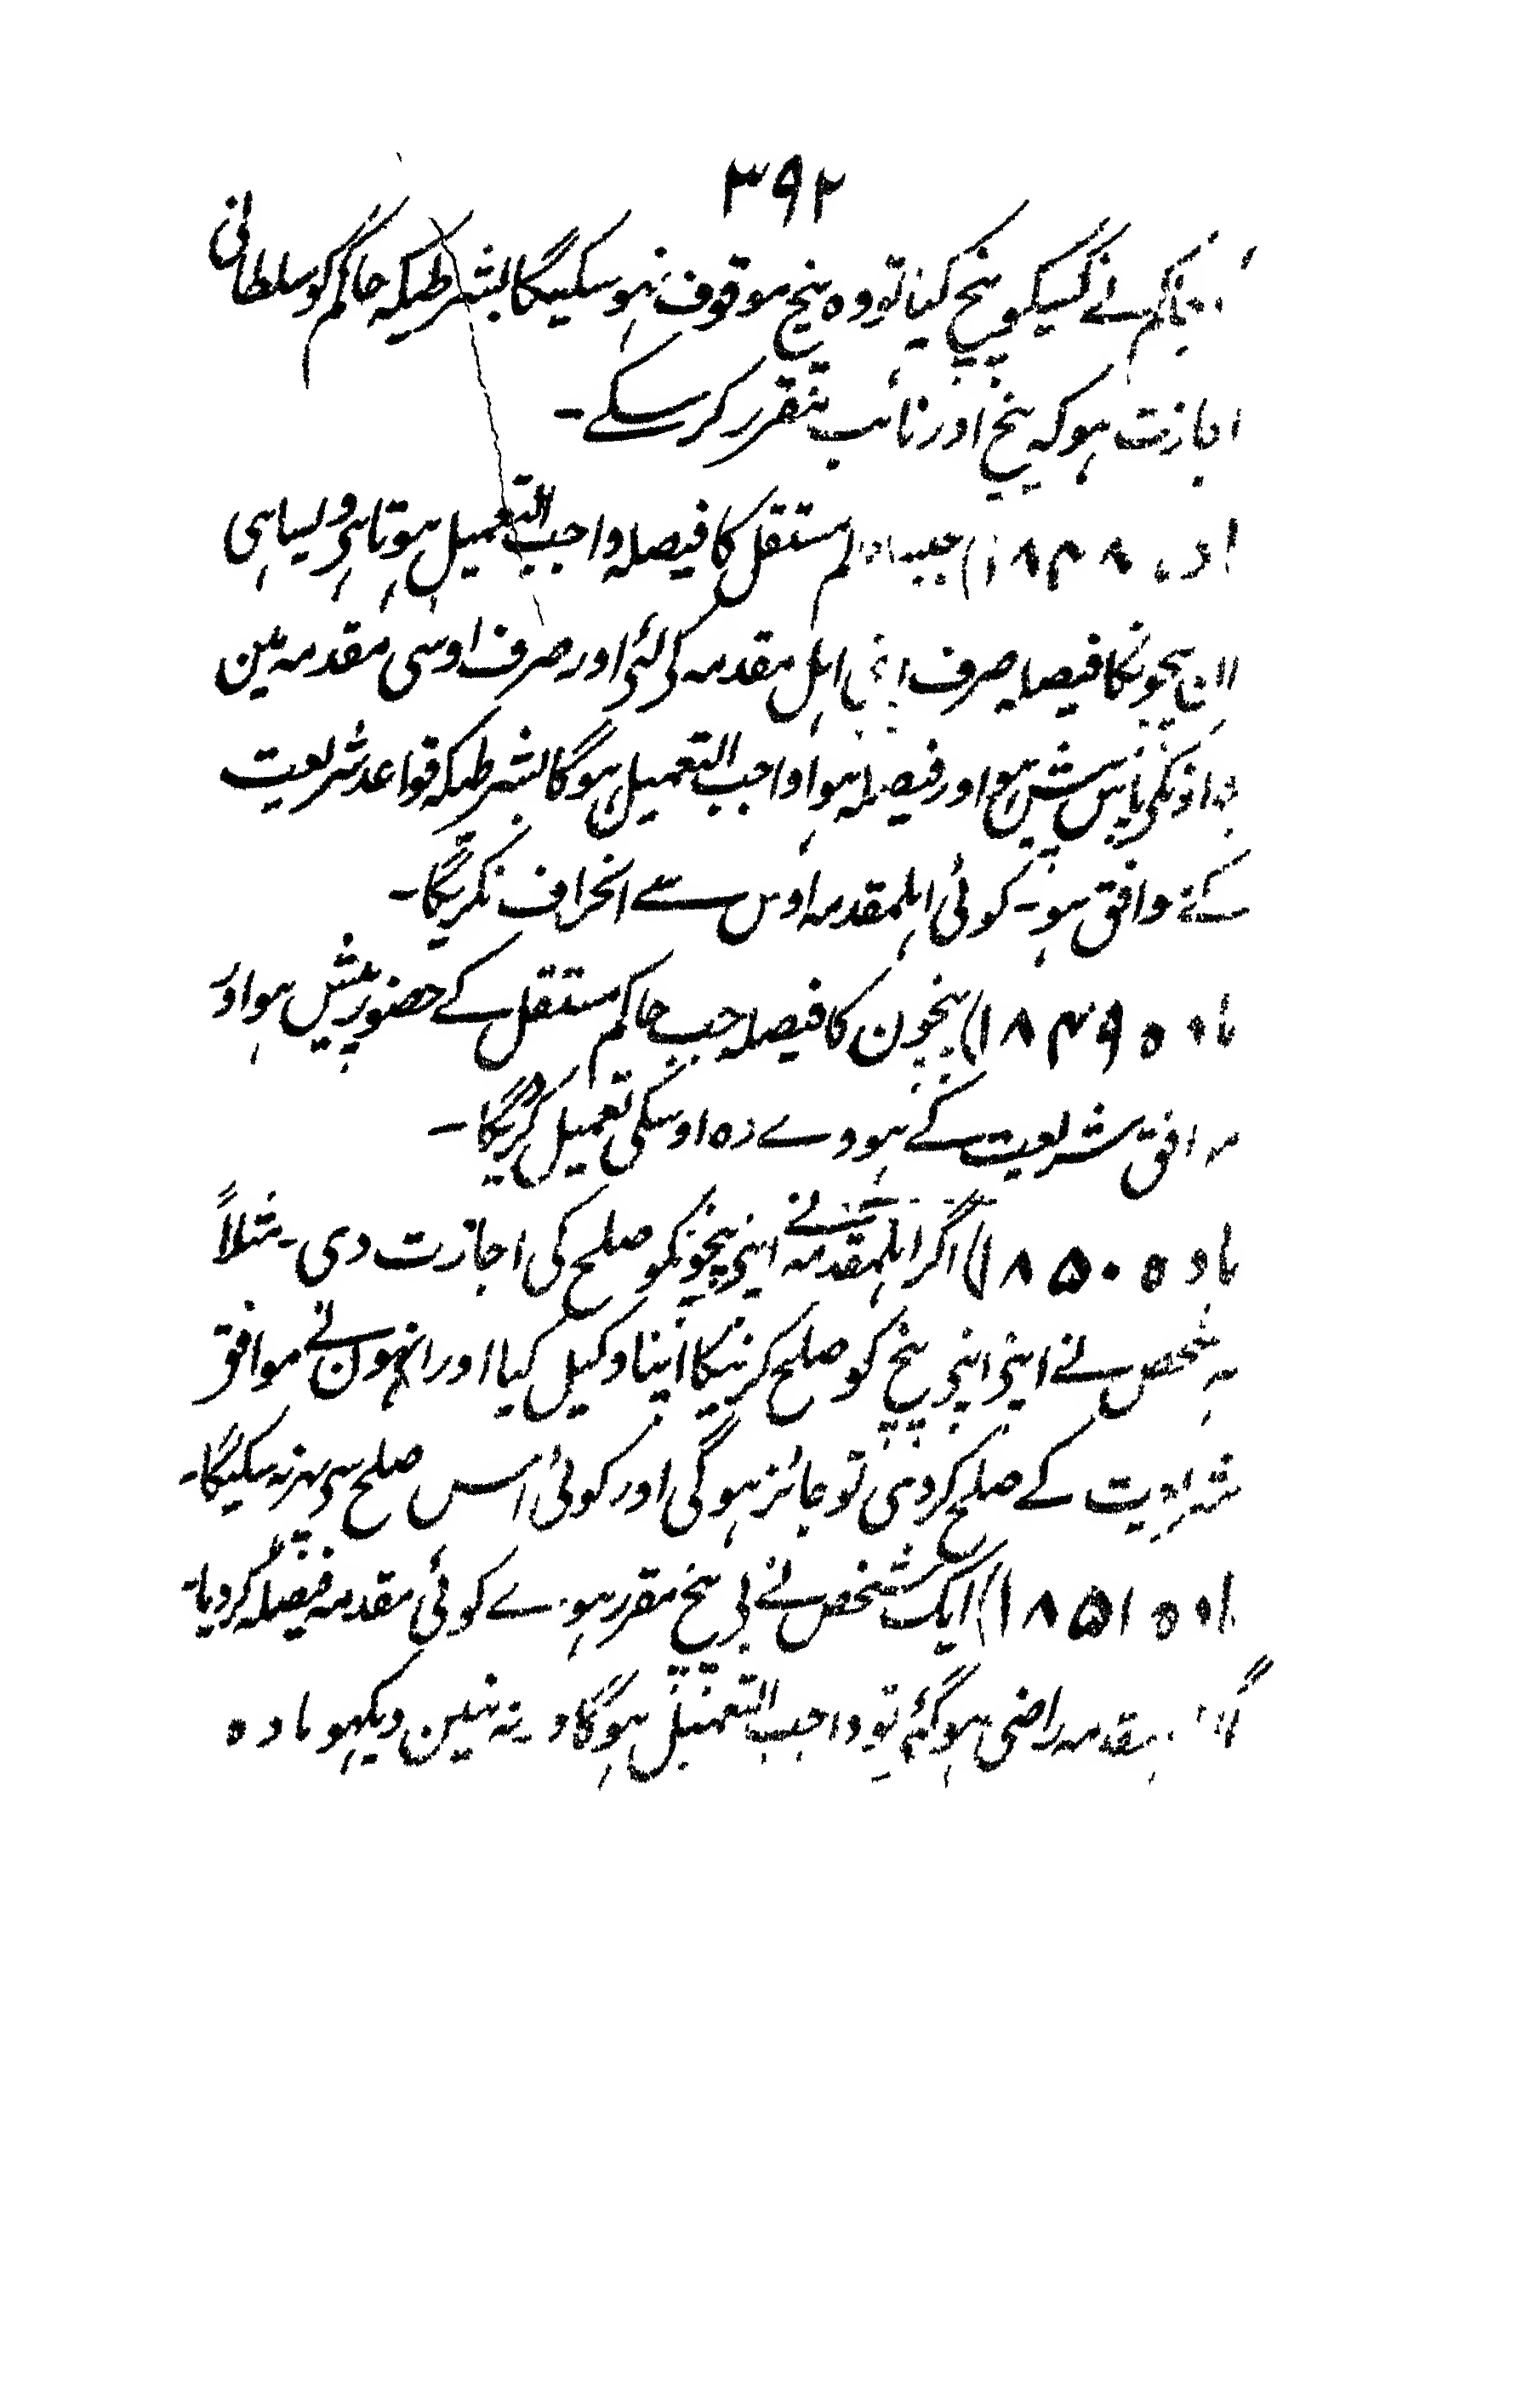 ۳۹۲
حاکم نے کسیکو پنچ کیا تو وہ پنچ موقوف نہو سکیگا بشرطیکہ حاکم کو سلطانی
اجازت ہو کہ پنچ اور نائب مقرر کر سکے۔
۱۸۴۸) جیسا حاکم مستقل کا فیصلہ واجب التعمیل ہوتا ہی ویسا ہی
ان پنچونکا فیصلہ صرف اہل مقدمہ کی لئی اور صرف اوسی مقدمہ مین
جو اونکی پاس پیش ہو اور فیصلہ ہوا واجب التعمیل ہوگا بشرطیکہ قواعد شریعت
کے موافق ہو۔ کوئی اہلمقدمہ اوس سے انحراف نکریگا۔
مادہ ۱۸۴۹) پنچون کا فیصلہ جب حاکم مستقل کے حضور پیش ہو اور
موافق شریعت کے ہووے وہ اوسکی تعمیل کریگا۔
مادہ ۱۸۵۰) اگر اہلمقدمہ نے اپنی پنچونکو صلح کی اجازت دی۔ مثلاً
ہر شخص نے اپنی اپنی پنچ کو صلح کرنیکا اپنا وکیل کیا اور انہون نے موافق
شریعت کے صلح کر دی تو جائز ہوگی اور کوئی اس صلح سی پہر نہ سکیگا۔
مادہ ۱۸۵۱) ایک شخص نے بی پنچ مقرر ہوے کوئی مقدمہ فیصلہ کر دیا۔
مقدمہ راضی ہوگئی تو واجب التعمیل ہوگا ورنہ نہین دیکہو مادہ